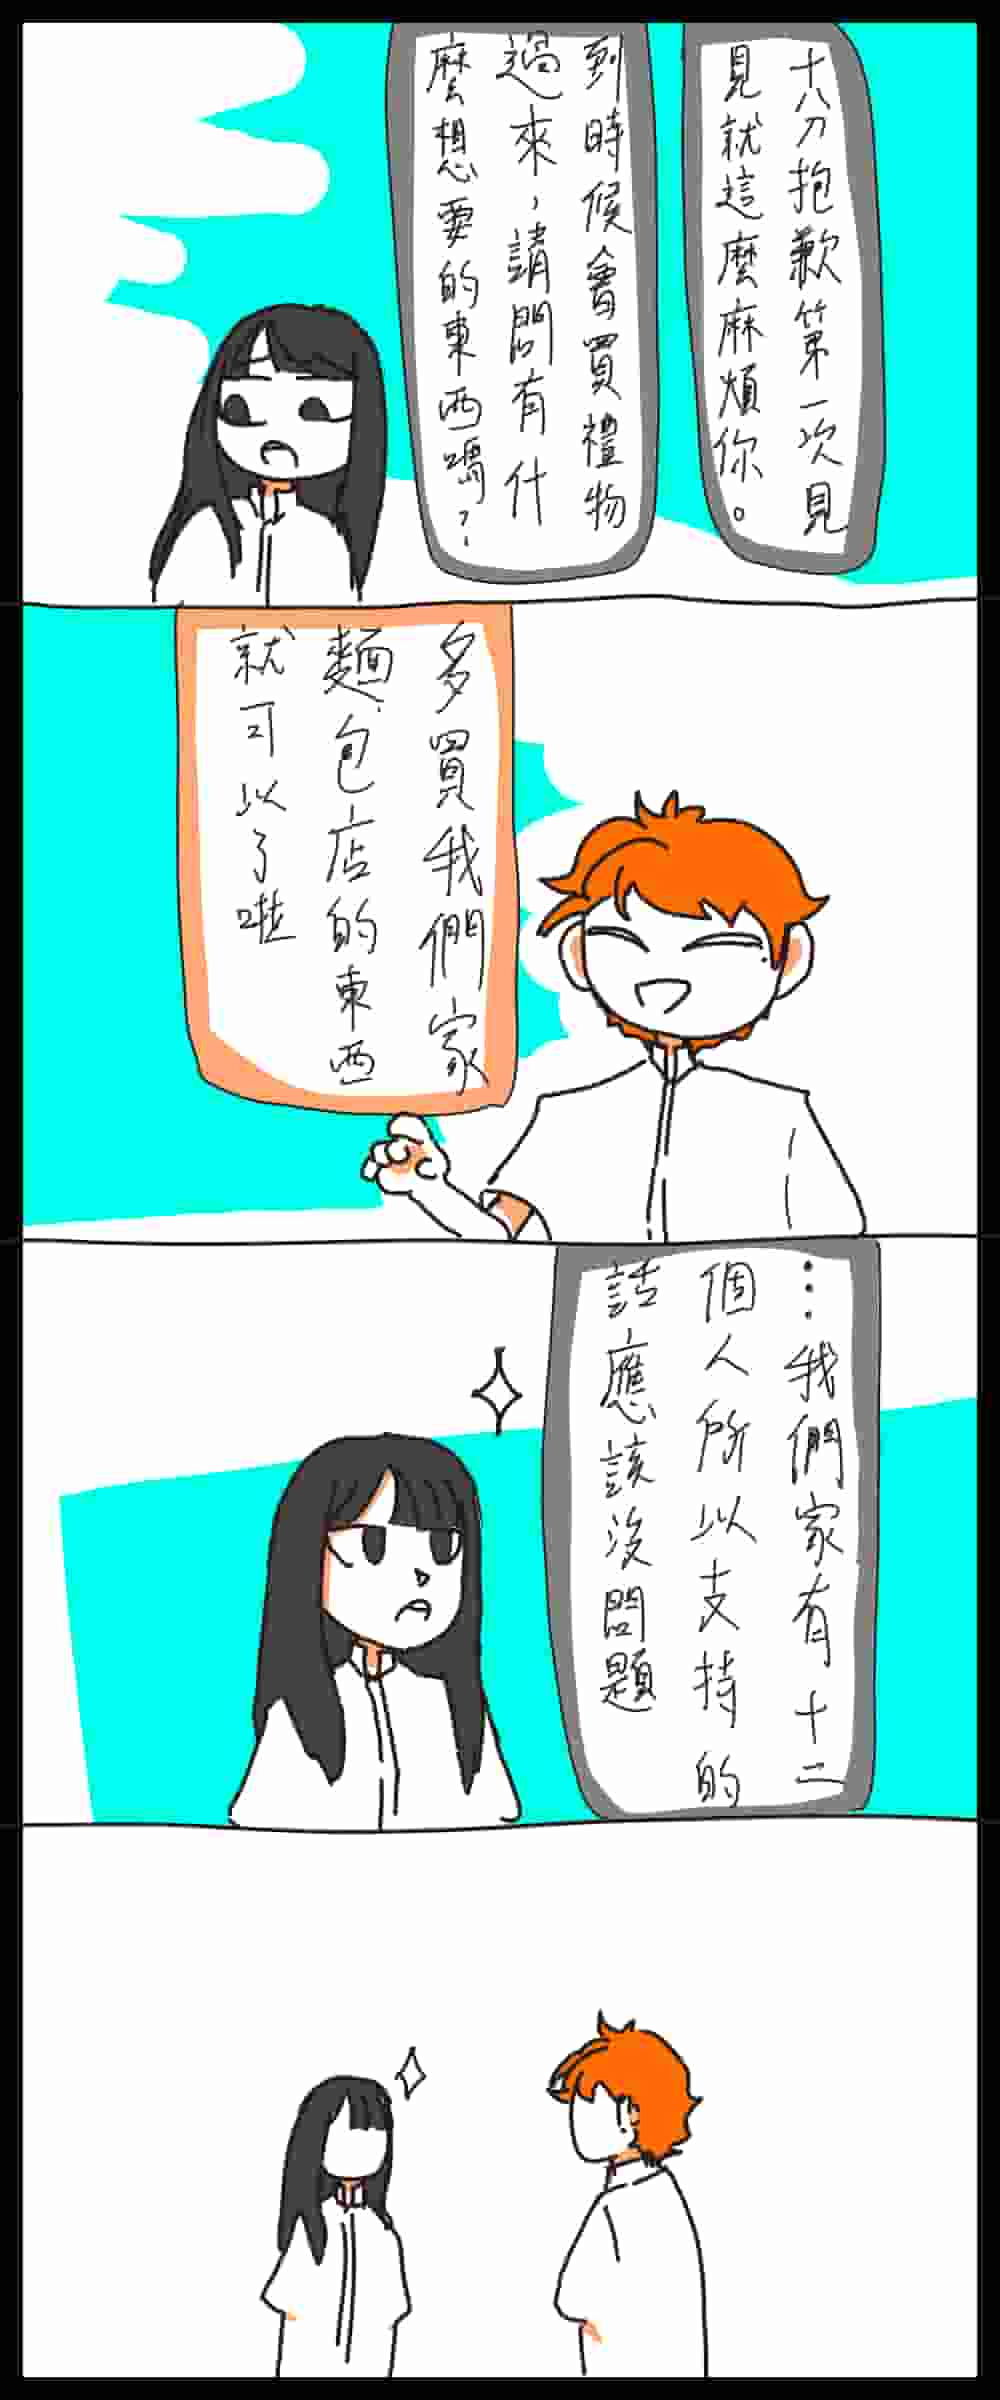 十分抱歉第一次見
見就這麼麻煩你。
到時候會買禮物
過來，請問有什
麼想要的東西嗎？
多買我們家
麵包店的東西
就可以了啦
…我們家有十二
個人所以支持的
話應該沒問題